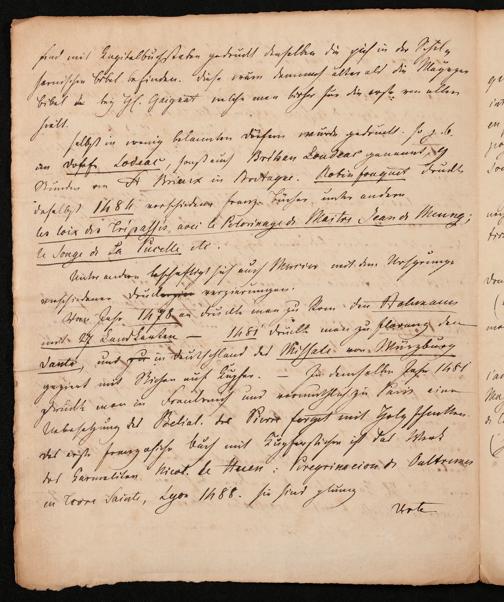 sind mit Capitalbuchstaben gedruckt denselben die sich in der
Bibel befinden. diese wären demnach älter als die Maynzer
Bibel bey H. Gaignat welche man bisher für die erste von allen
hielt.
Selbst in wenig bekannten Dörfern wurde gedruckt. So z. B.
im Dorffe Lodeac, sonst auch Brehan Loudeac genannt,
Stunden von St Brieux in Bretagne. Robin fouquet druckte
daselbst 1484 verschiedene französ. Bücher, unter andern
les loix des Trépassés, avec le Pelerinage de Maitre Jean de Meung;
le Songe de La Pucelle etc.
Unter andern beschäftigt sich auch Mercier mit dem Ursprunge
verschiedener verzierungen.
Im Jahr 1478 druckte man zu Rom den
mit 27 Landkarten — 1481 druckte man zu florenz den
Dante, und in Deutschland das Missale von Würzburg
geziert mit Stichen auf Kupfer. — In demselben Jahr 1481
druckte man in Frankreich und vermuthlich zu Paris eine
Uebersetzung des Belial. des Pierre forget mit Holzschnitten.
das erste französische Buch mit Kupferstichen ist das Werk
des Carmeliten Nicol. le Huen: Peregrinacion de Oultremer
en terre Sainte, Lyon 1488. sie sind